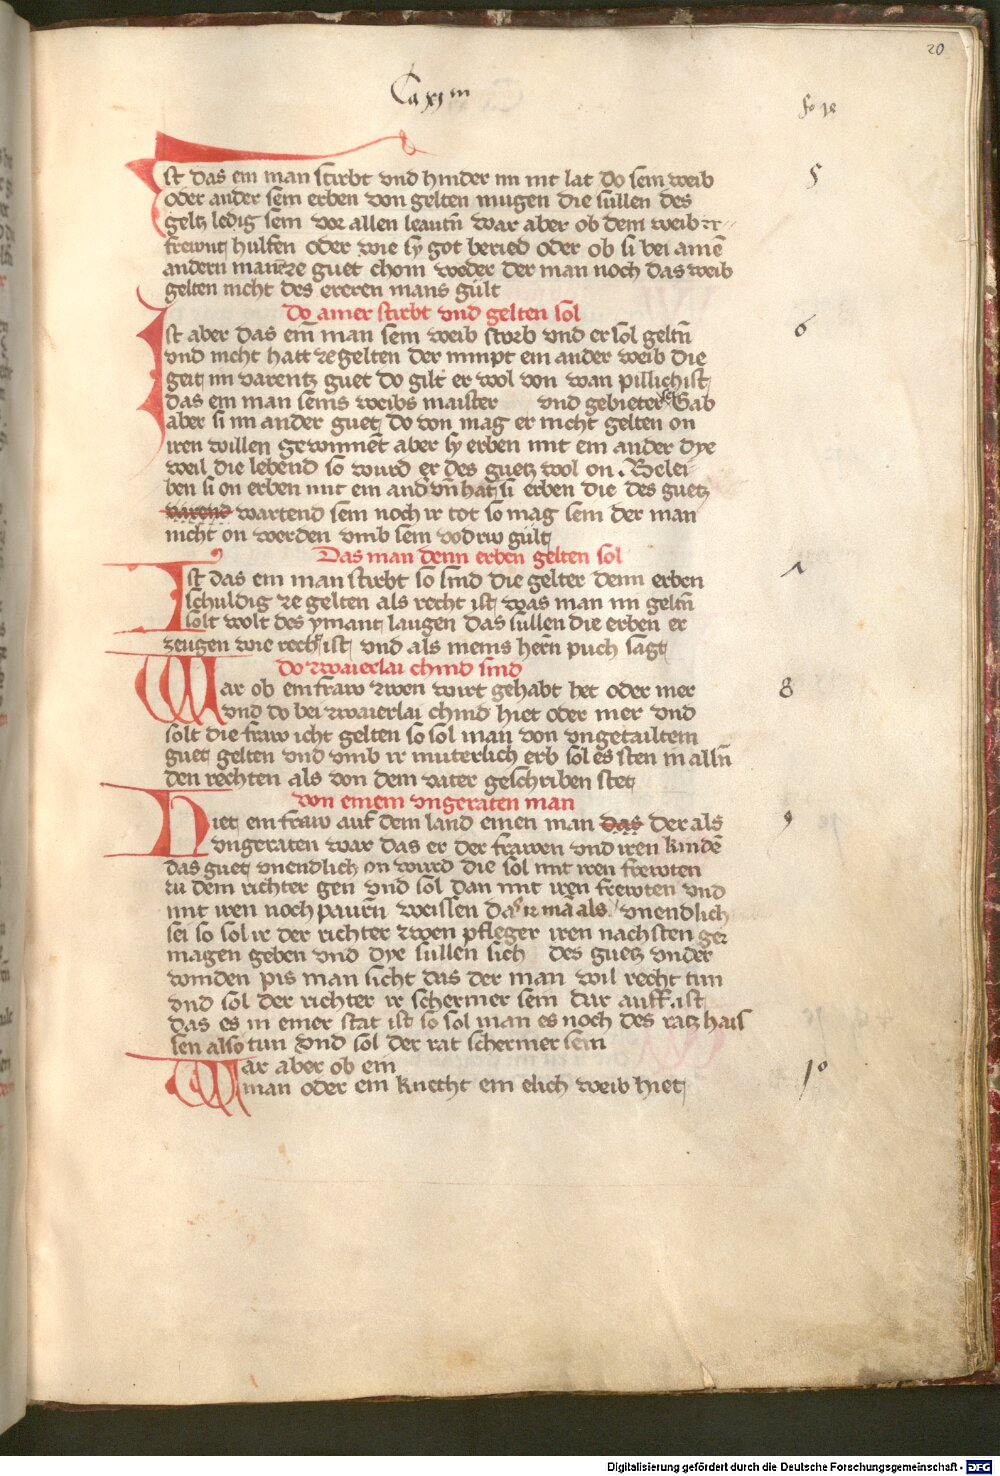 20
Ca xj m
fo 18
Ist das ein man stirbt vnd hinder im nit lat do sein weib
5
oder ander sein erben von gelten mugen die sullen des
geltz ledig sein vor allen leautn war aber ob dem weib ir
frewnt hulfen oder wie sy got beried oder ob si bei aine
andern manne ze guet chom weder der man noch das weib
gelten nicht des ereren mans gult
Do ainer stirbt vnd gelten sol
Ist aber das ein man sein weib storb vnd er sol geltn
6
vnd nicht hatt ze gelten der nimpt ein ander weib die
geit im varentz guet do gilt er wol von wan pillich ist
das ein man seins weibs maister vnd gebieter ist Gab
aber si im ander guet do von mag er nicht gelten on
iren willen gewinnet aber sy erben mit ein ander dye
weil die lebend so wurd er des guetz wol on Belei
ben si on erben mit ein and vn hat si erben die des guetz
varend wartend sein noch ir tot so mag sein der man
nicht on werden vmb sein vodrw gult
Das man denn erben gelten sol
Ist das ein man stirbt so sind die gelter denn erben
schuldig ze gelten als recht ist was man im geltn
solt wolt des ymant laugen das sullen die erben er
zeugen wie recht ist vnd als meins hern puch sagt
Do zwaierlai chind sind
War ob ein fraw zwen wirt gehabt het oder mer
8
vnd do bei zwaierlai chind hiet oder mer vnd
solt die fraw icht gelten so sol man von vngetailtem
guet gelten vnd vmb ir muterlich erb sol es sten in alln
den rechten als von dem vater geschriben stet
von einem vngeraten man
Hiet ein fraw auf dem land einen man das der als
9
vngeraten war das er der frawen vnd iren kinde
das guet vnendlich on wurd die sol mit iren frewten
zu dem richter gen vnd sol dan mit iren frewten vnd
mit iren nochpaurn weissen das ir ma als vnendlich
sei so sol ir der richter zwen pfleger iren nachsten ge
magen geben vnd dye sullen sich des guetz vnder
winden pis man sicht das der man wil recht tun
vnd sol der richter ir schermer sein dar auff ist
das es in einer stat ist so sol man es noch des ratz hais
sen also tun vnd sol der rat schermer sein
War aber ob ein
man oder ein knecht ein elich weib hiet
10
Digitalisierung gefördert durch die Deutsche Forschungsgemeinschaft - DFG